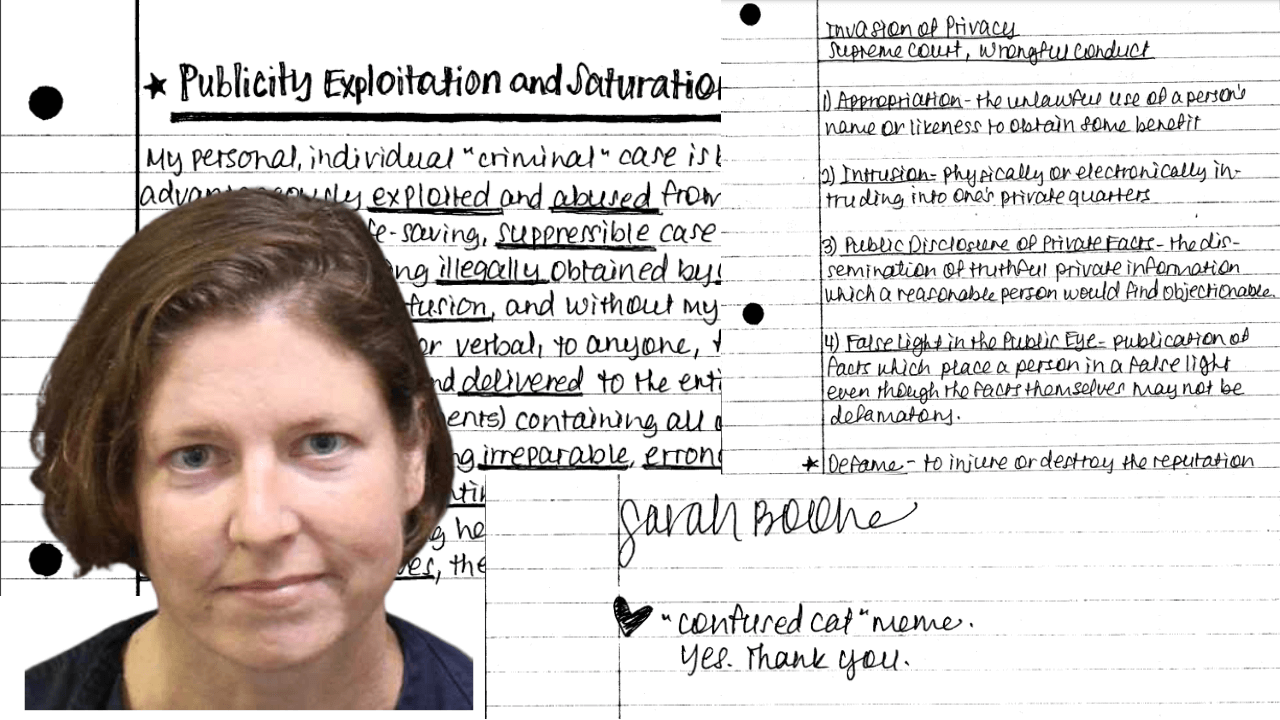 ★ Publicity Exploitation and Saturation
My personal, individual "criminal" case is
exploited and abused from
-saving, suppressible case
illegally obtained by
and without my
or verbal, to anyone,
delivered to the
containing all
irreparable,
the
Invasion of Privacy
Supreme Court, Wrongful Conduct
1) Appropriation - the unlawful use of a person's
name or likeness to obtain some benefit
2) Intrusion - physically or electronically in-
truding into one's private quarters
3) Public Disclosure of Private Facts - the dis-
semination of truthful private information
which a reasonable person would find objectionable.
4) False Light in the Public Eye - publication of
facts which place a person in a false light
even though the facts themselves may not be
defamatory.
★ Defame - to injure or destroy the reputation
Sarah Boone
♥ "confused cat" meme.
Yes. Thank you.